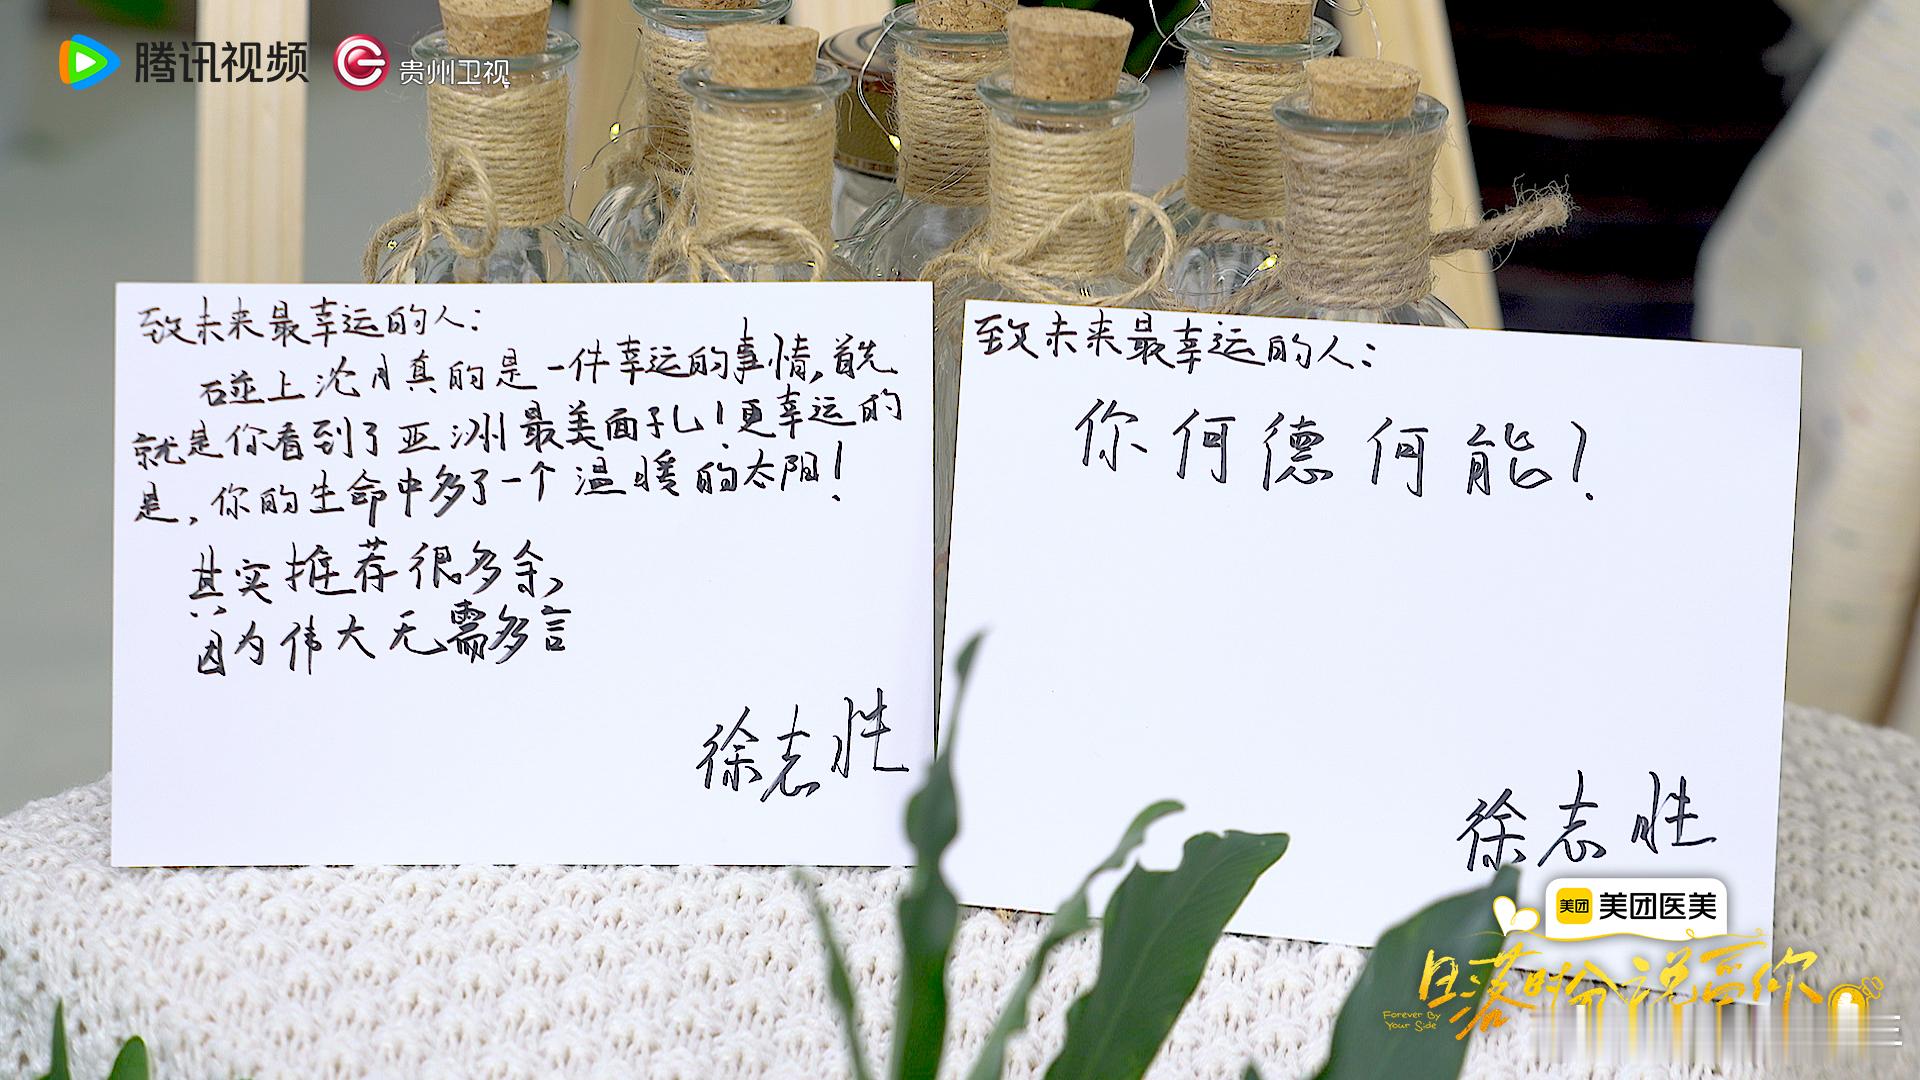 腾讯视频
贵州卫视
致未来最幸运的人：
碰上沈月真的是一件幸运的事情，首先
就是你看到了亚洲最美面孔！更幸运的
是，你的生命中多了一个温暖的太阳！
其实推荐很多余，
因为伟大无需多言
徐志胜
致未来最幸运的人：
你何德何能！
徐志胜
美团
美团医美
日落时分说爱你
Forever By
Your Side